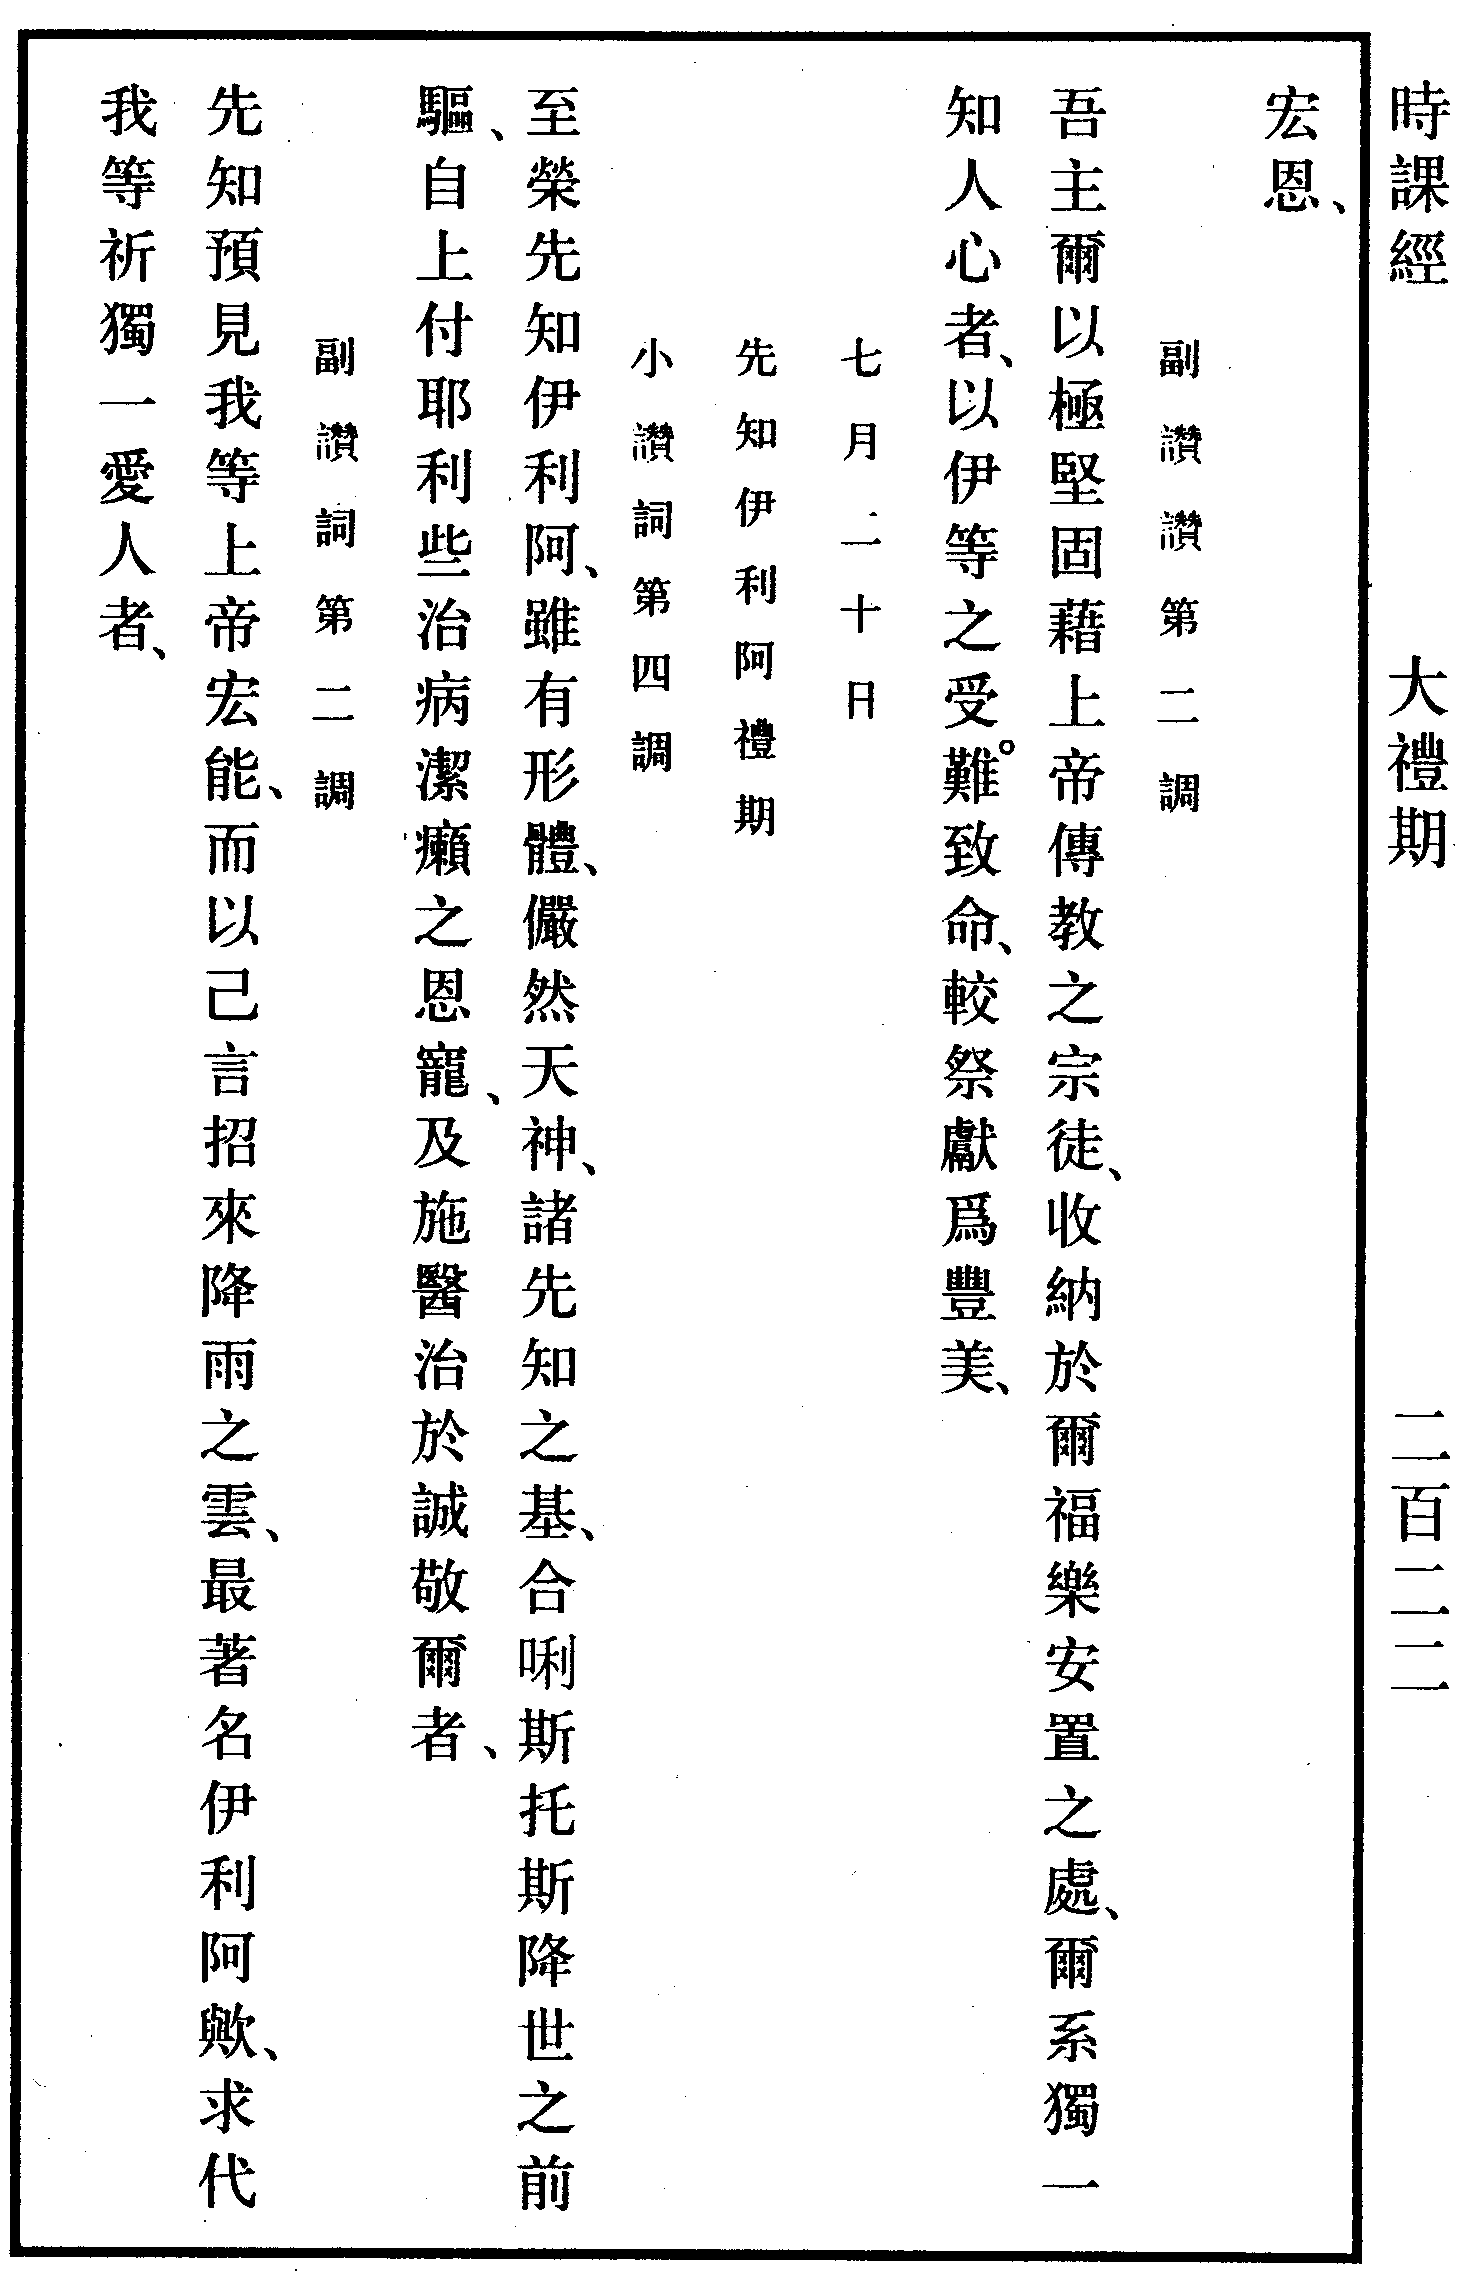 時課經 大禮期 二百二二
宏恩、
副讚讚第二調
吾主爾以極堅固藉上帝傳教之宗徒、收納於爾福樂安置之處、爾系獨一
知人心者、以伊等之受難。致命、較祭獻爲豐美、
七月二十日
先知伊利阿禮期
小讚詞第四調
至榮先知伊利阿、雖有形體、儼然天神、諸先知之基、合唎斯托斯降世之前
驅、自上付耶利些治病潔癩之恩寵、及施醫治於誠敬爾者、
副讚詞第二調
先知預見我等上帝宏能、而以己言招來降雨之雲、最著名伊利阿歟、求代
我等祈獨一愛人者、